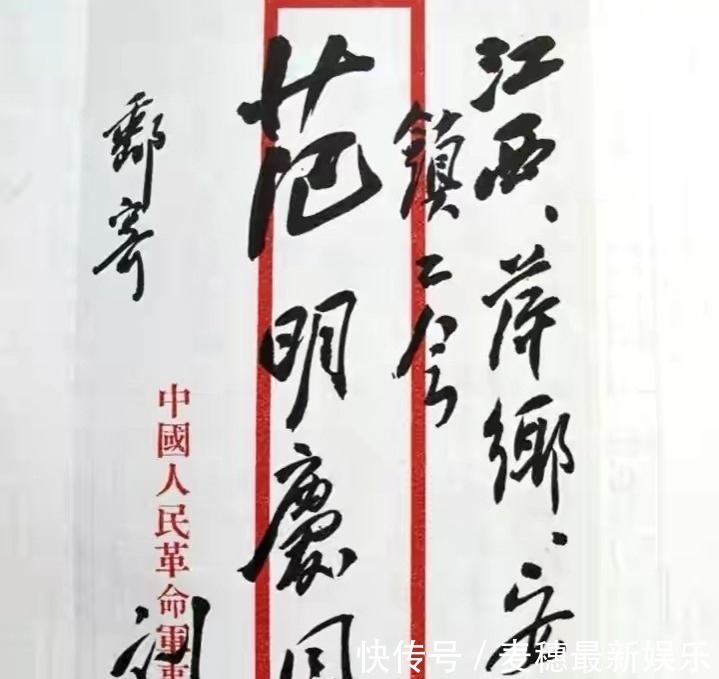 江西、萍鄉、安
鎮二八号
范明慶同
郵寄
中國人民革命軍事
快传号 / 麦穗最新娱乐